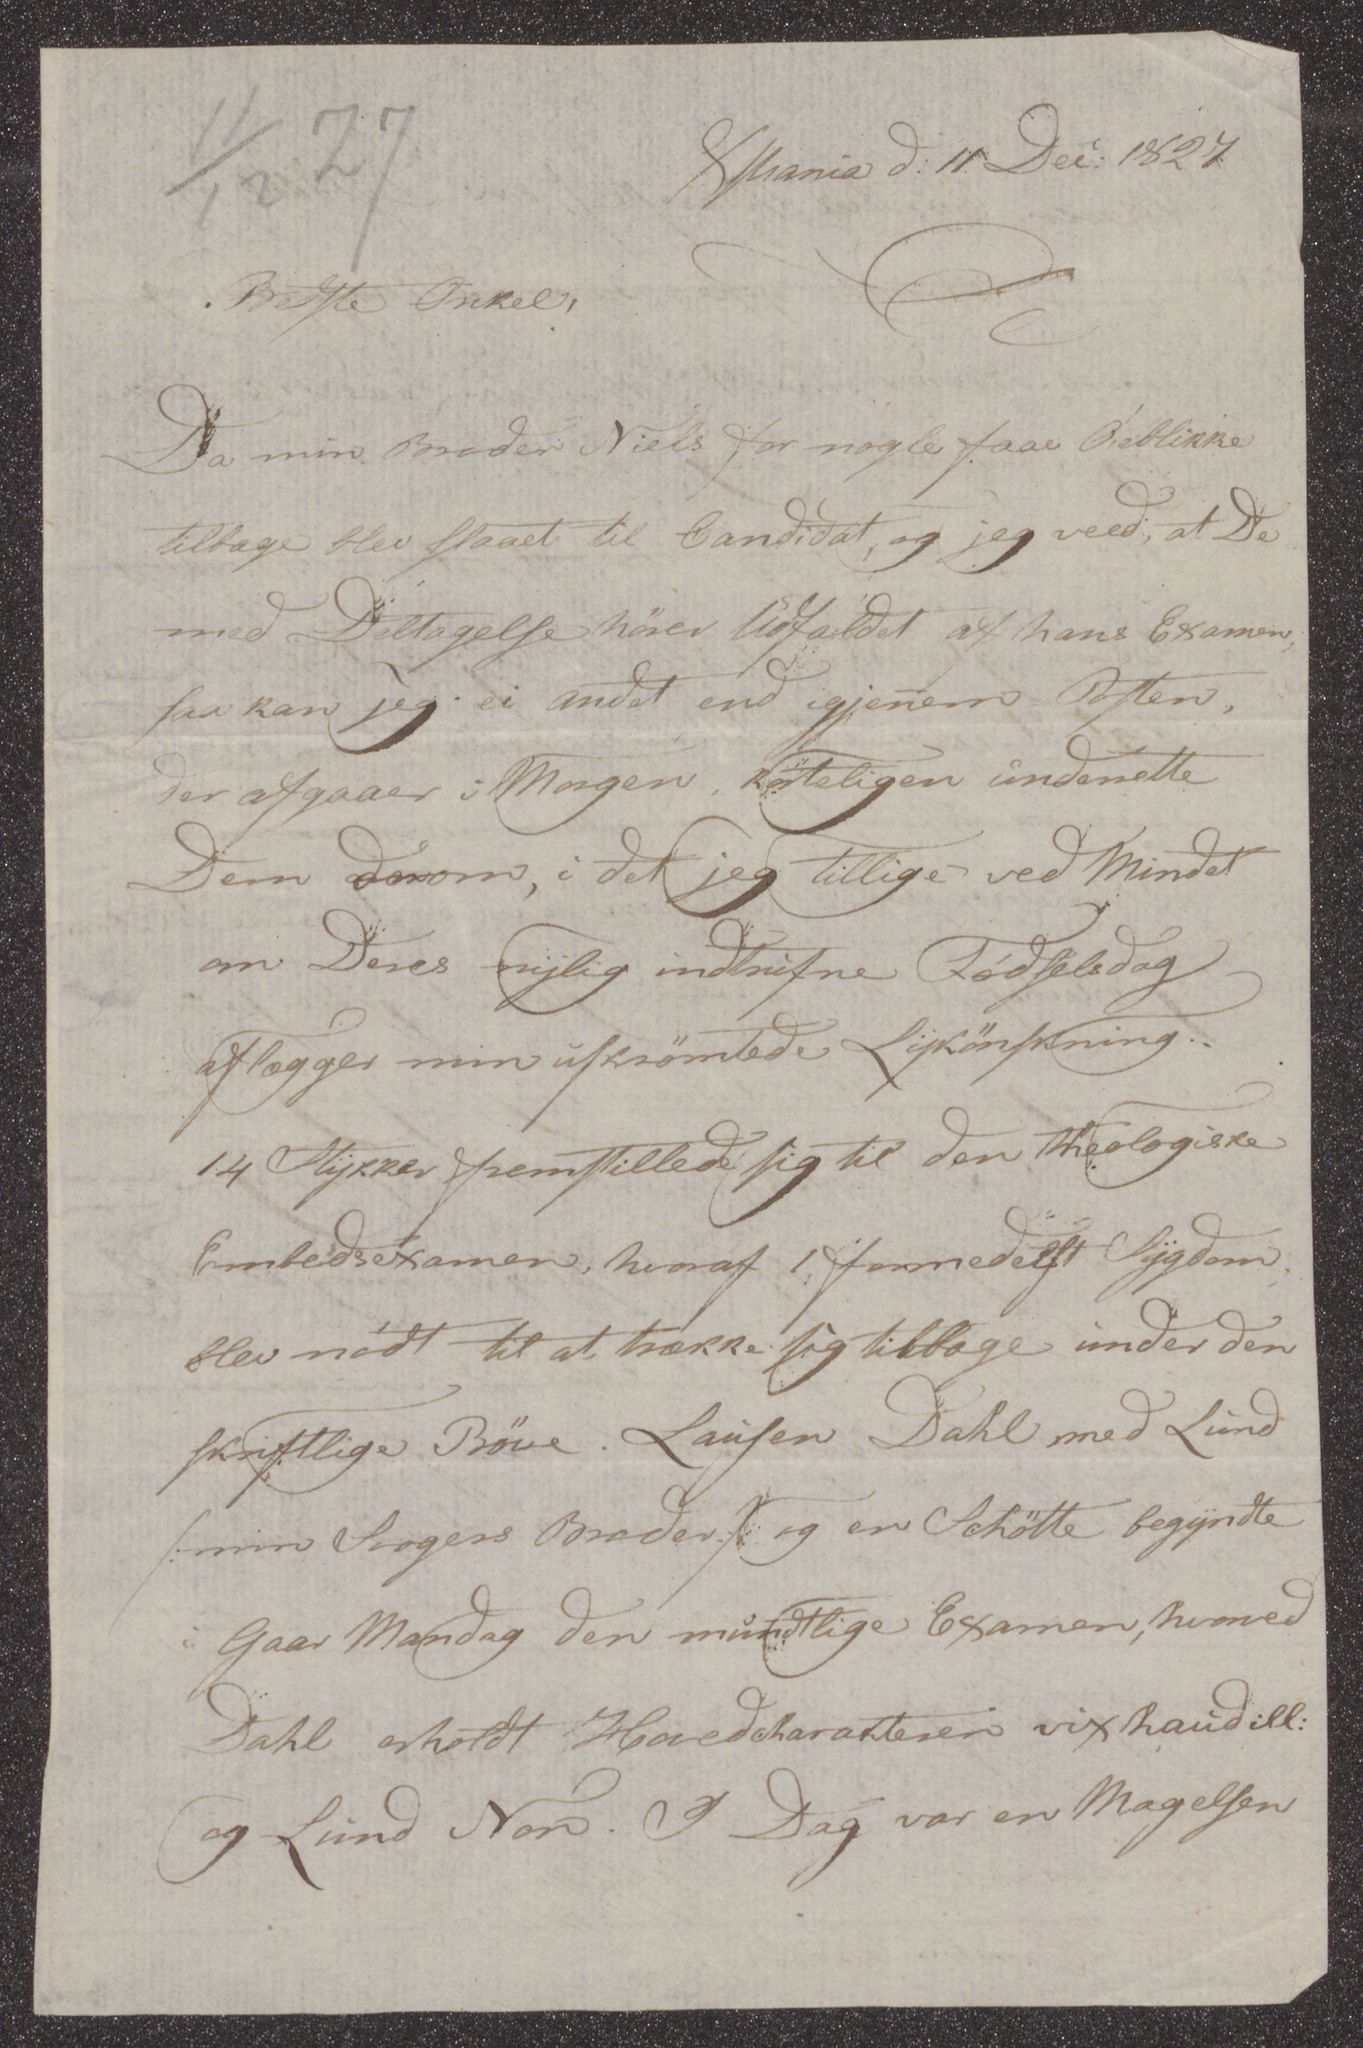 11/12 27
Xsthania d: 11 Dec: 1827
Bedste Onkel,
Da min Broder Niels for nogle faae Öieblikke
tilbage blev slaaet til Candidat, og jeg veed, at De
med Deltagelse hörer Udfaldet af hans Examen,
saa kan jeg ei andet end igjenem Posten,
der afgaaer i Morgen, korteligen underrette
Dem derom, i det jeg tillige ved Mindet
om Deres nylig indtrufne Födselsdag
aflægger min uskrömtede Lykönskning.
14 Stykker fremstillede sig til den theologiske
Embedsexamen, hvoraf 1 formedelst Sygdom,
blev nödt til at trække sig tilbage under den
skriftlige Pröve. Lausen Dahl med Lund
/:min Svogers Broder:/ og en Schötte begyndte
i Gaar Mandag den mundtlige Examen, hvorved
Dahl erholdt Hovedcharakteren vix haud ill:
og Lund Non. I Dag var en Magelsen